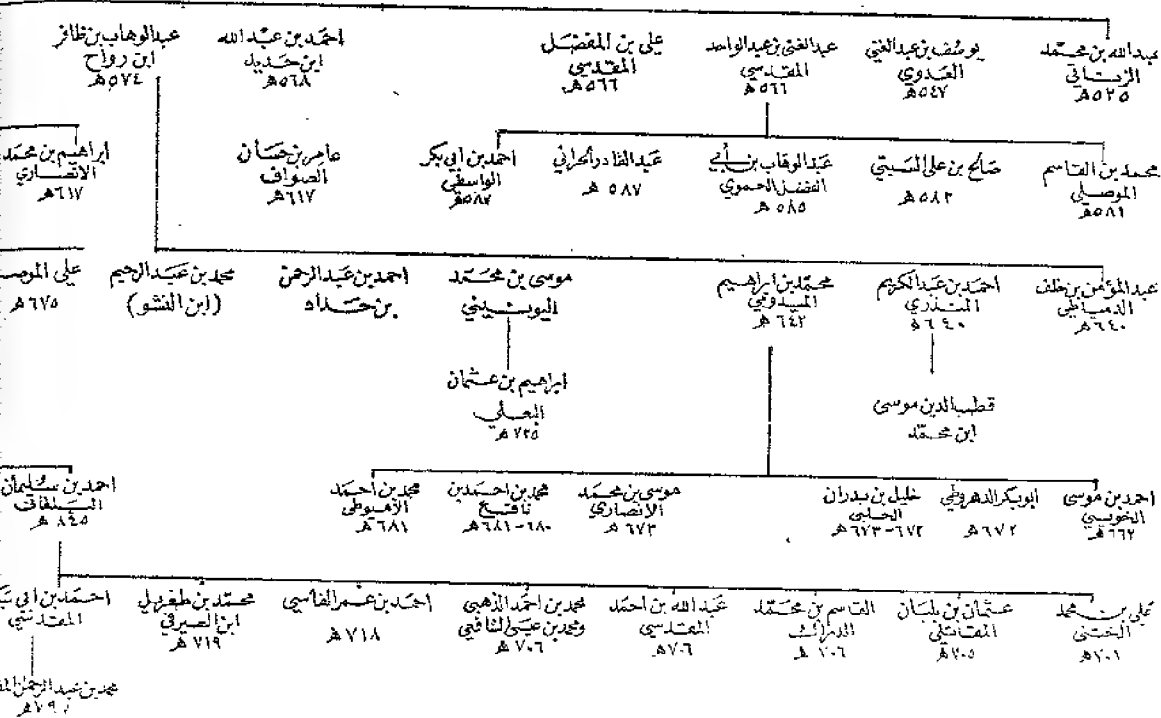 عبدالله بن محمد
الزناتي
٥٢٥ هـ
يوسف بن عبدالغني
العدوي
٥٤٧ هـ
عبدالغني بن عبدالواحد
المقدسي
٥٦٦ هـ
علي بن المفضل
المقدسي
٥٦٦ هـ
احمد بن عبدالله
ابن حديد
٥٦٨ هـ
عبدالوهاب بن ظافر
ابن رواح
٥٧٤ هـ
محمد بن القاسم
الموصلي
٥٨١ هـ
صالح بن علي السبتي
٥٨٢ هـ
عبدالوهاب بن أبي
الفضل الحموي
٥٨٥ هـ
عبدالقادر الحراني
٥٨٧ هـ
احمد بن ابي بكر
الواسطي
٥٨٧ هـ
عامر بن حسان
الصواف
٦١٧ هـ
ابراهيم بن محمد
الانصاري
٦١٧ هـ
عبدالمؤمن بن خلف
الدمياطي
٦٤٠ هـ
احمد بن عبدالكريم
المنذري
٦٤٠ هـ
محمد بن ابراهيم
الميدومي
٦٤٢ هـ
موسى بن محمد
اليونيني
احمد بن عبدالرحمن
بن حداد
محمد بن عبدالرحيم
(ابن النشو)
علي الموصـ
٦٧٥ هـ
ابراهيم بن عثمان
البعلي
٧٢٥ هـ
قطب الدين موسى
ابن محمد
احمد بن موسى
الخويي
٦٦٢ هـ
ابوبكر الدهروطي
٦٧٢ هـ
خليل بن بدران
الحلبي
٦٧٢-٦٧٣ هـ
موسى بن محمد
الانصاري
٦٧٣ هـ
محمد بن احمد بن
نافع
٦٨٠-٦٨١ هـ
محمد بن احمد
الاميوطي
٦٨١ هـ
احمد بن سليمان
٨٤٥ هـ
علي بن محمد
الختني
٧٠١ هـ
عثمان بن بلبان
المقاتلي
٧٠٥ هـ
القاسم بن محمد
٧٠٦ هـ
عبدالله بن احمد
المقدسي
٧٠٦ هـ
محمد بن احمد الذهبي
ومحمد بن عيسى الشافعي
٧٠٦ هـ
احمد بن عمر الفاسي
٧١٨ هـ
محمد بن طغريل
ابن الصيرفي
٧١٩ هـ
احمد بن ابي بكـ
المقدسي
محمد بن عبدالرحمن المقـ